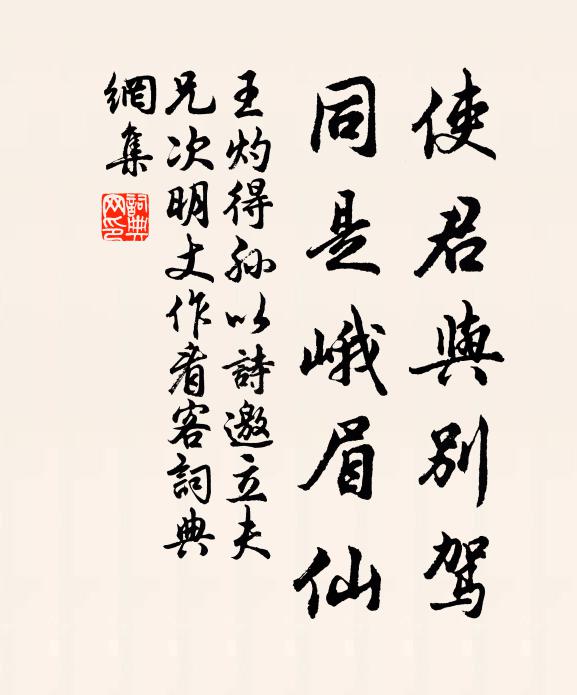 使君與別駕
同是峨眉仙
王灼得孙以詩邀立夫
兄次明丈作看客詞典
網集
詞典
网印